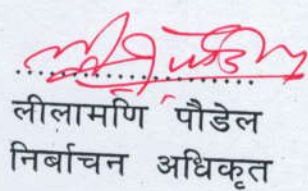 लीलामणि पौडेल
निर्बाचन अधिकृत